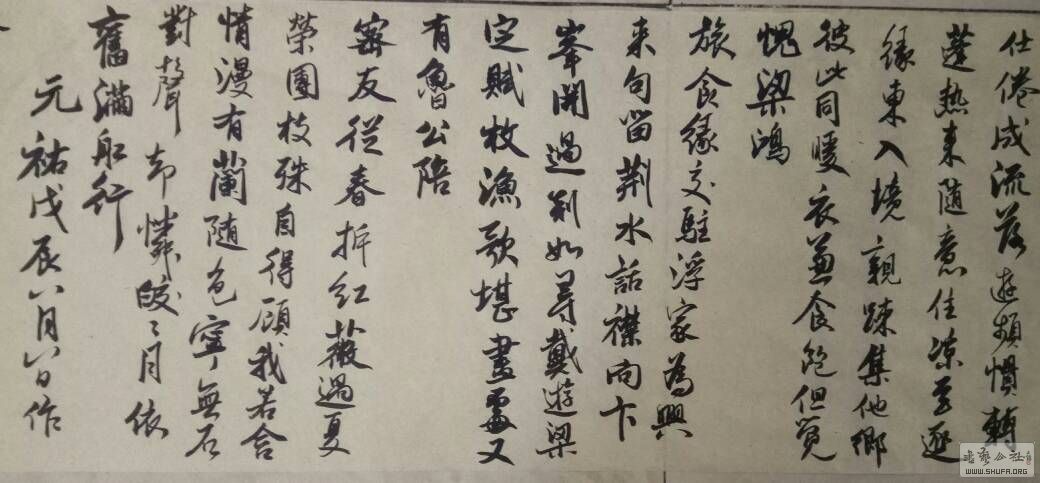 仕倦成流落遊頻慣轉
蓬熱来随意住凉至逐
緣東入境親踈集他鄉
彼此同暖衣兼食飽但覺
愧梁鴻
旅食緣交駐浮家為興
来句留荆水話襟向卞
峯開過剡如尋戴遊梁
定賦枚漁歌堪畫處又
有魯公陪
密友從春拆紅薇過夏
榮團枝殊自得顧我若含
情漫有蘭随色寧無石
對聲却憐皎〻月依
舊滿船行
元祐戊辰八月八日作
书艺公社
WWW.SHUFA.ORG